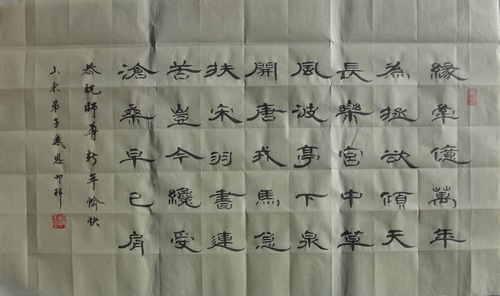 緣牽億萬年
為拯欲傾天
長樂宮中草
風波亭下泉
開唐戎馬急
扶宋羽書連
苦豈今纔受
滄桑早已肩
恭祝師尊新年愉快
山東弟子感恩叩拜